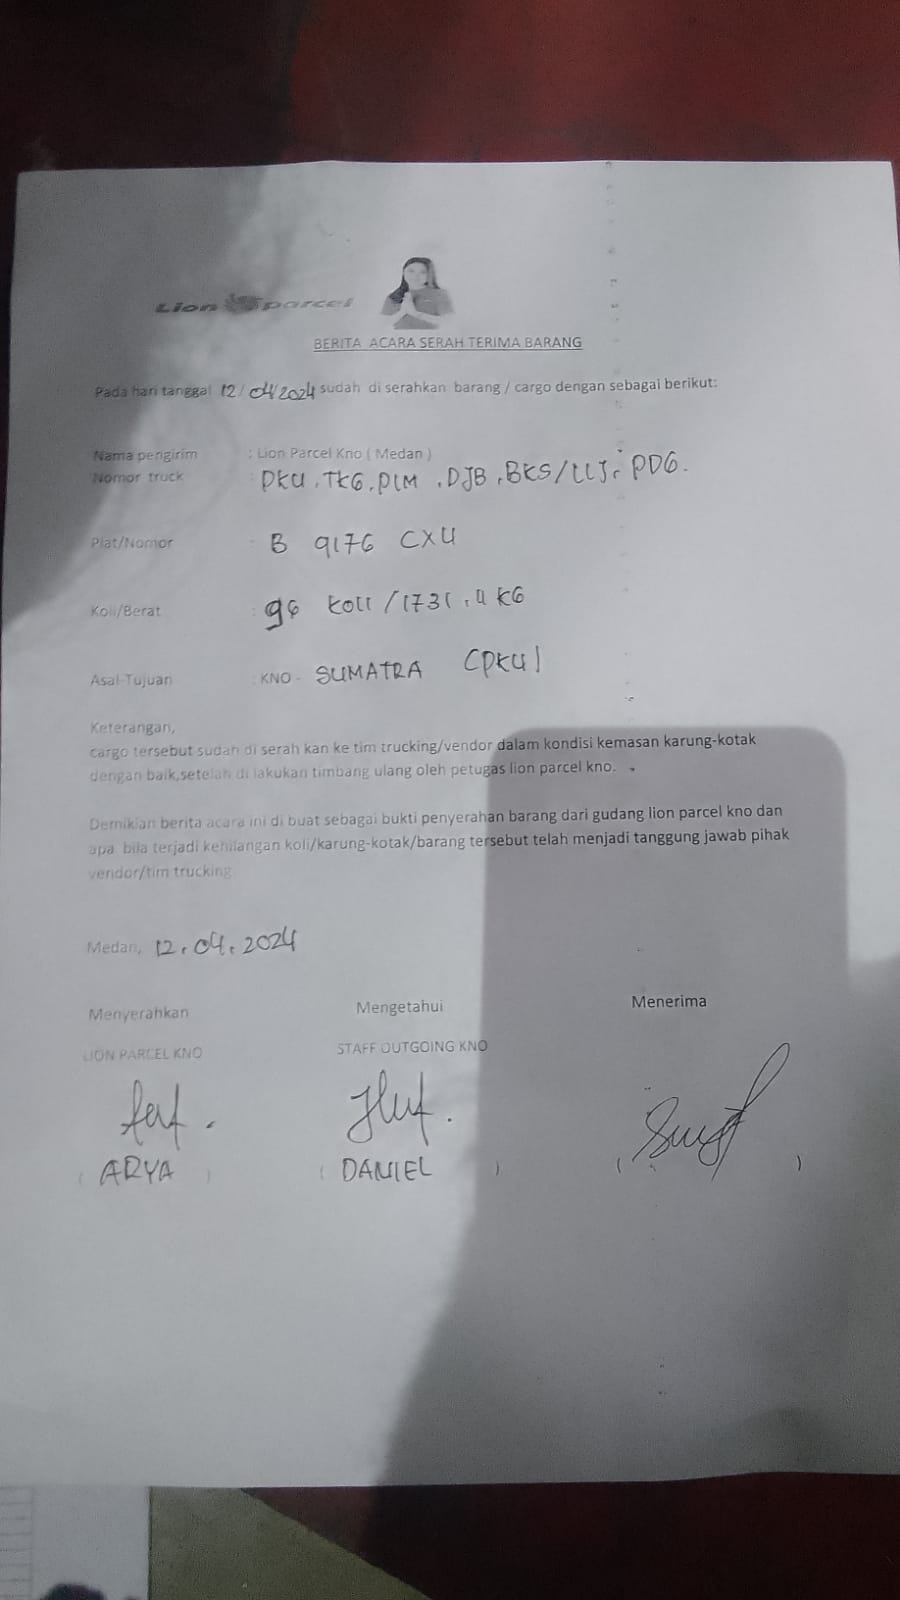 Lion parcel
BERITA ACARA SERAH TERIMA BARANG
Pada hari tanggal 12/04/2024 sudah di serahkan barang / cargo dengan sebagai berikut:
Nama pengirim : Lion Parcel Kno ( Medan )
Nomor truck : PKU, TKG, PLM, DJB, BKS/LLJ, PDG.
Plat/Nomor : B 9176 CXU
Koli/Berat : 96 KOLI / 1731,4 KG
Asal-Tujuan : KNO - SUMATRA (PKU)
Keterangan,
cargo tersebut sudah di serah kan ke tim trucking/vendor dalam kondisi kemasan karung-kotak
dengan baik,setelah di lakukan timbang ulang oleh petugas lion parcel kno.
Demikian berita acara ini di buat sebagai bukti penyerahan barang dari gudang lion parcel kno dan
apa bila terjadi kehilangan koli/karung-kotak/barang tersebut telah menjadi tanggung jawab pihak
vendor/tim trucking
Medan, 12.04.2024
Menyerahkan Mengetahui Menerima
LION PARCEL KNO STAFF OUTGOING KNO
( ARYA ) ( DANIEL ) ( )